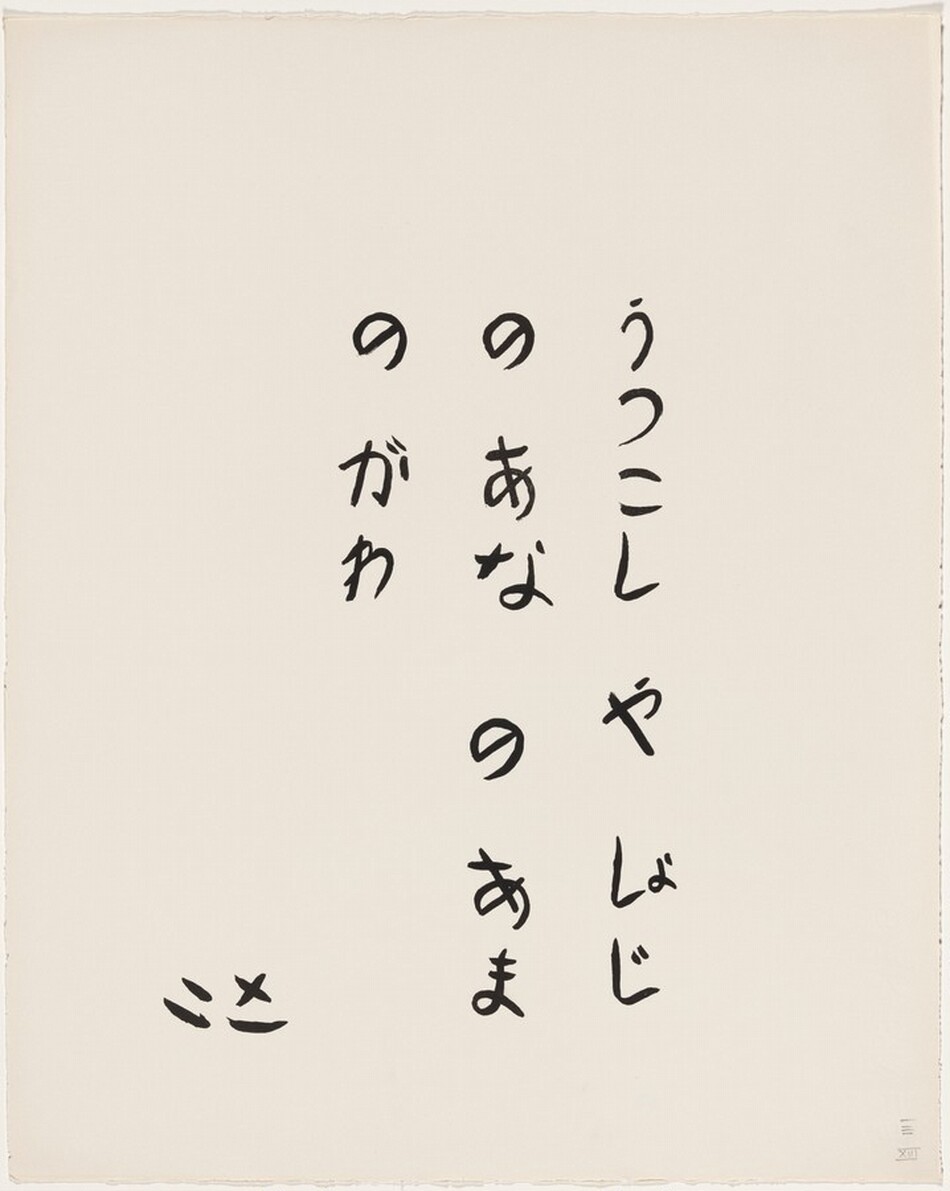 うつこし や しょじ
の あな の あま
の がわ
XIII